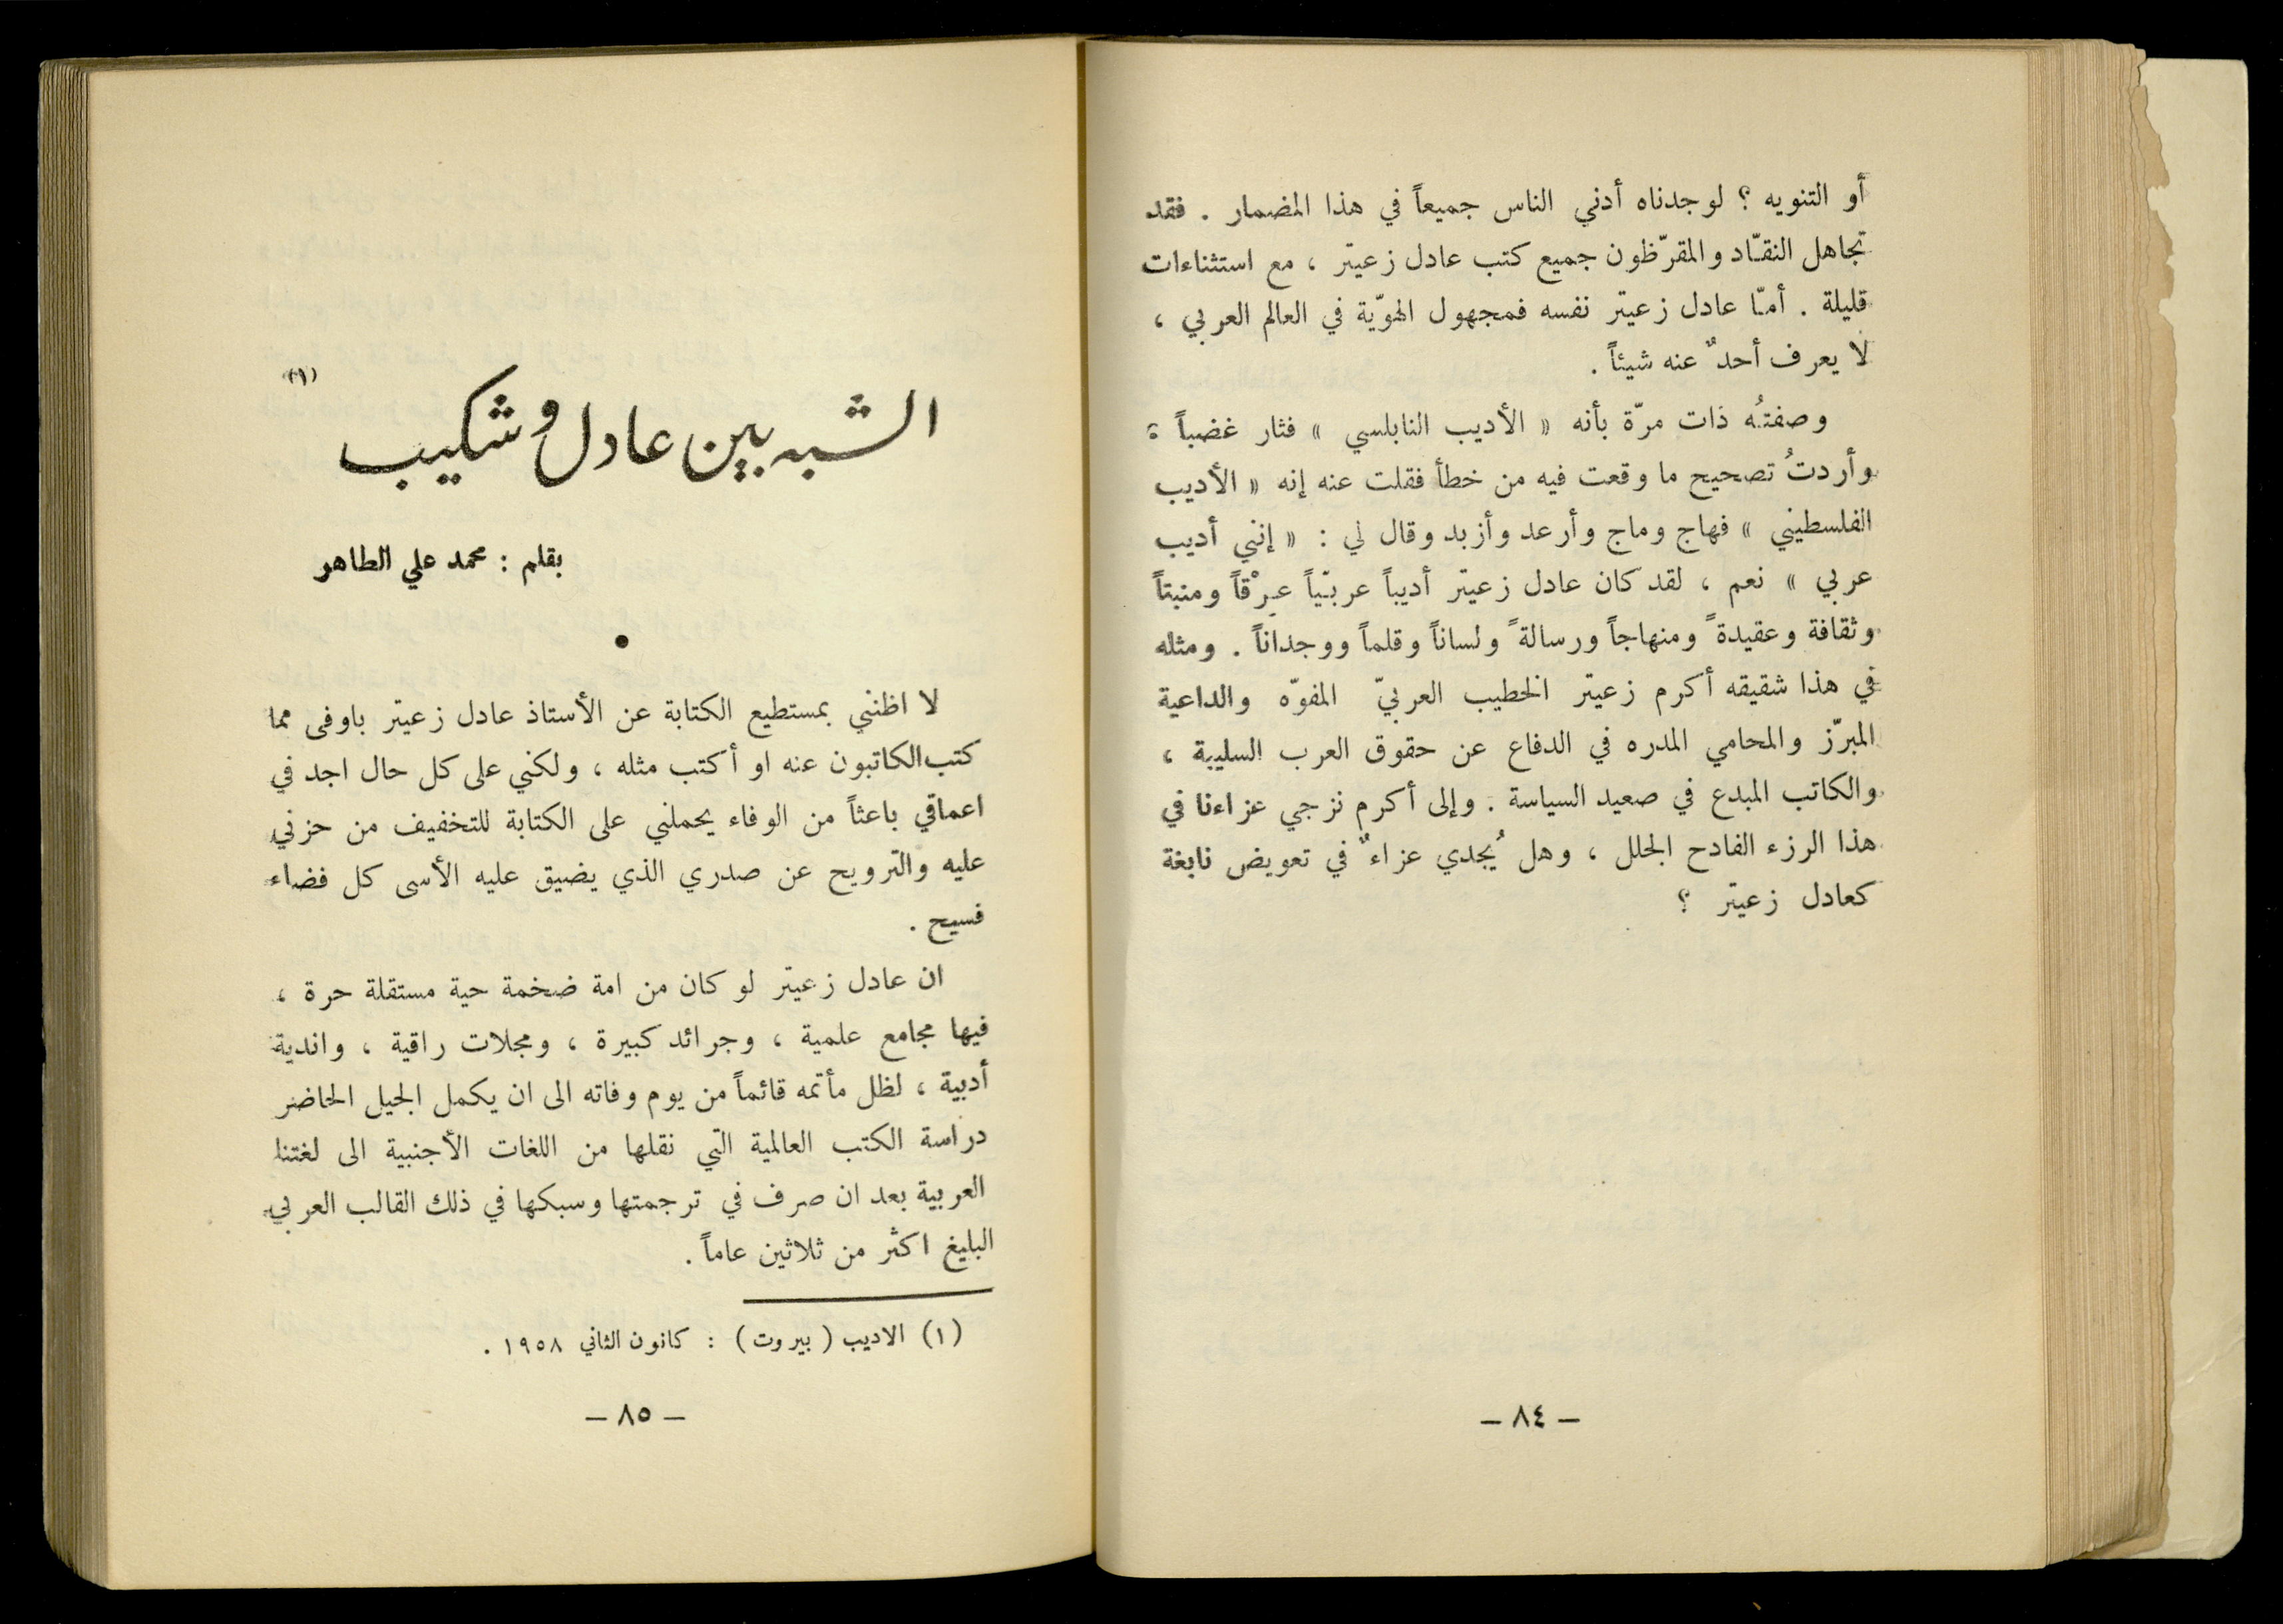 أو التنويه ؟ لوجدناه أدني الناس جميعاً في هذا المضمار . فقد
تجاهل النقّاد والمقرّظون جميع كتب عادل زعيتر ، مع استثناءات
قليلة . أمّا عادل زعيتر نفسه فمجهول الهوّية في العالم العربي ،
لا يعرف أحدٌ عنه شيئاً .
وصفتُه ذات مرّة بأنه « الأديب النابلسي » فثار غضباً ؛
وأردتُ تصحيح ما وقعت فيه من خطأ فقلت عنه إنه « الأديب
الفلسطيني » فهاج وماج وأرعد وأزبد وقال لي : « إنني أديب
عربي » نعم ، لقد كان عادل زعيتر أديباً عربيّاً عِرْقاً ومنبتاً
وثقافة وعقيدةً ومنهاجاً ورسالةً ولساناً وقلماً ووجداناً . ومثله
في هذا شقيقه أكرم زعيتر الخطيب العربيّ المفوّه والداعية
المبرّز والمحامي المدره في الدفاع عن حقوق العرب السليبة ،
والكاتب المبدع في صعيد السياسة . وإلى أكرم نزجي عزاءنا في
هذا الرزء الفادح الجلل ، وهل يُجدي عزاءٌ في تعويض نابغة
كعادل زعيتر ؟
– ٨٤ –
الشبه بين عادل وشكيب (١)
بقلم : محمد علي الطاهر
•
لا اظنني بمستطيع الكتابة عن الأستاذ عادل زعيتر باوفى مما
كتب الكاتبون عنه او أكتب مثله ، ولكني على كل حال اجد في
اعماقي باعثاً من الوفاء يحملني على الكتابة للتخفيف من حزني
عليه والترويح عن صدري الذي يضيق عليه الأسى كل فضاء
فسيح .
ان عادل زعيتر لو كان من امة ضخمة حية مستقلة حرة ،
فيها مجامع علمية ، وجرائد كبيرة ، ومجلات راقية ، واندية
أدبية ، لظل مأتمه قائماً من يوم وفاته الى ان يكمل الجيل الحاضر
دراسة الكتب العالمية التي نقلها من اللغات الأجنبية الى لغتنا
العربية بعد ان صرف في ترجمتها وسبكها في ذلك القالب العربي
البليغ اكثر من ثلاثين عاماً .
(١) الاديب ( بيروت ) : كانون الثاني ١٩٥٨ .
– ٨٥ –